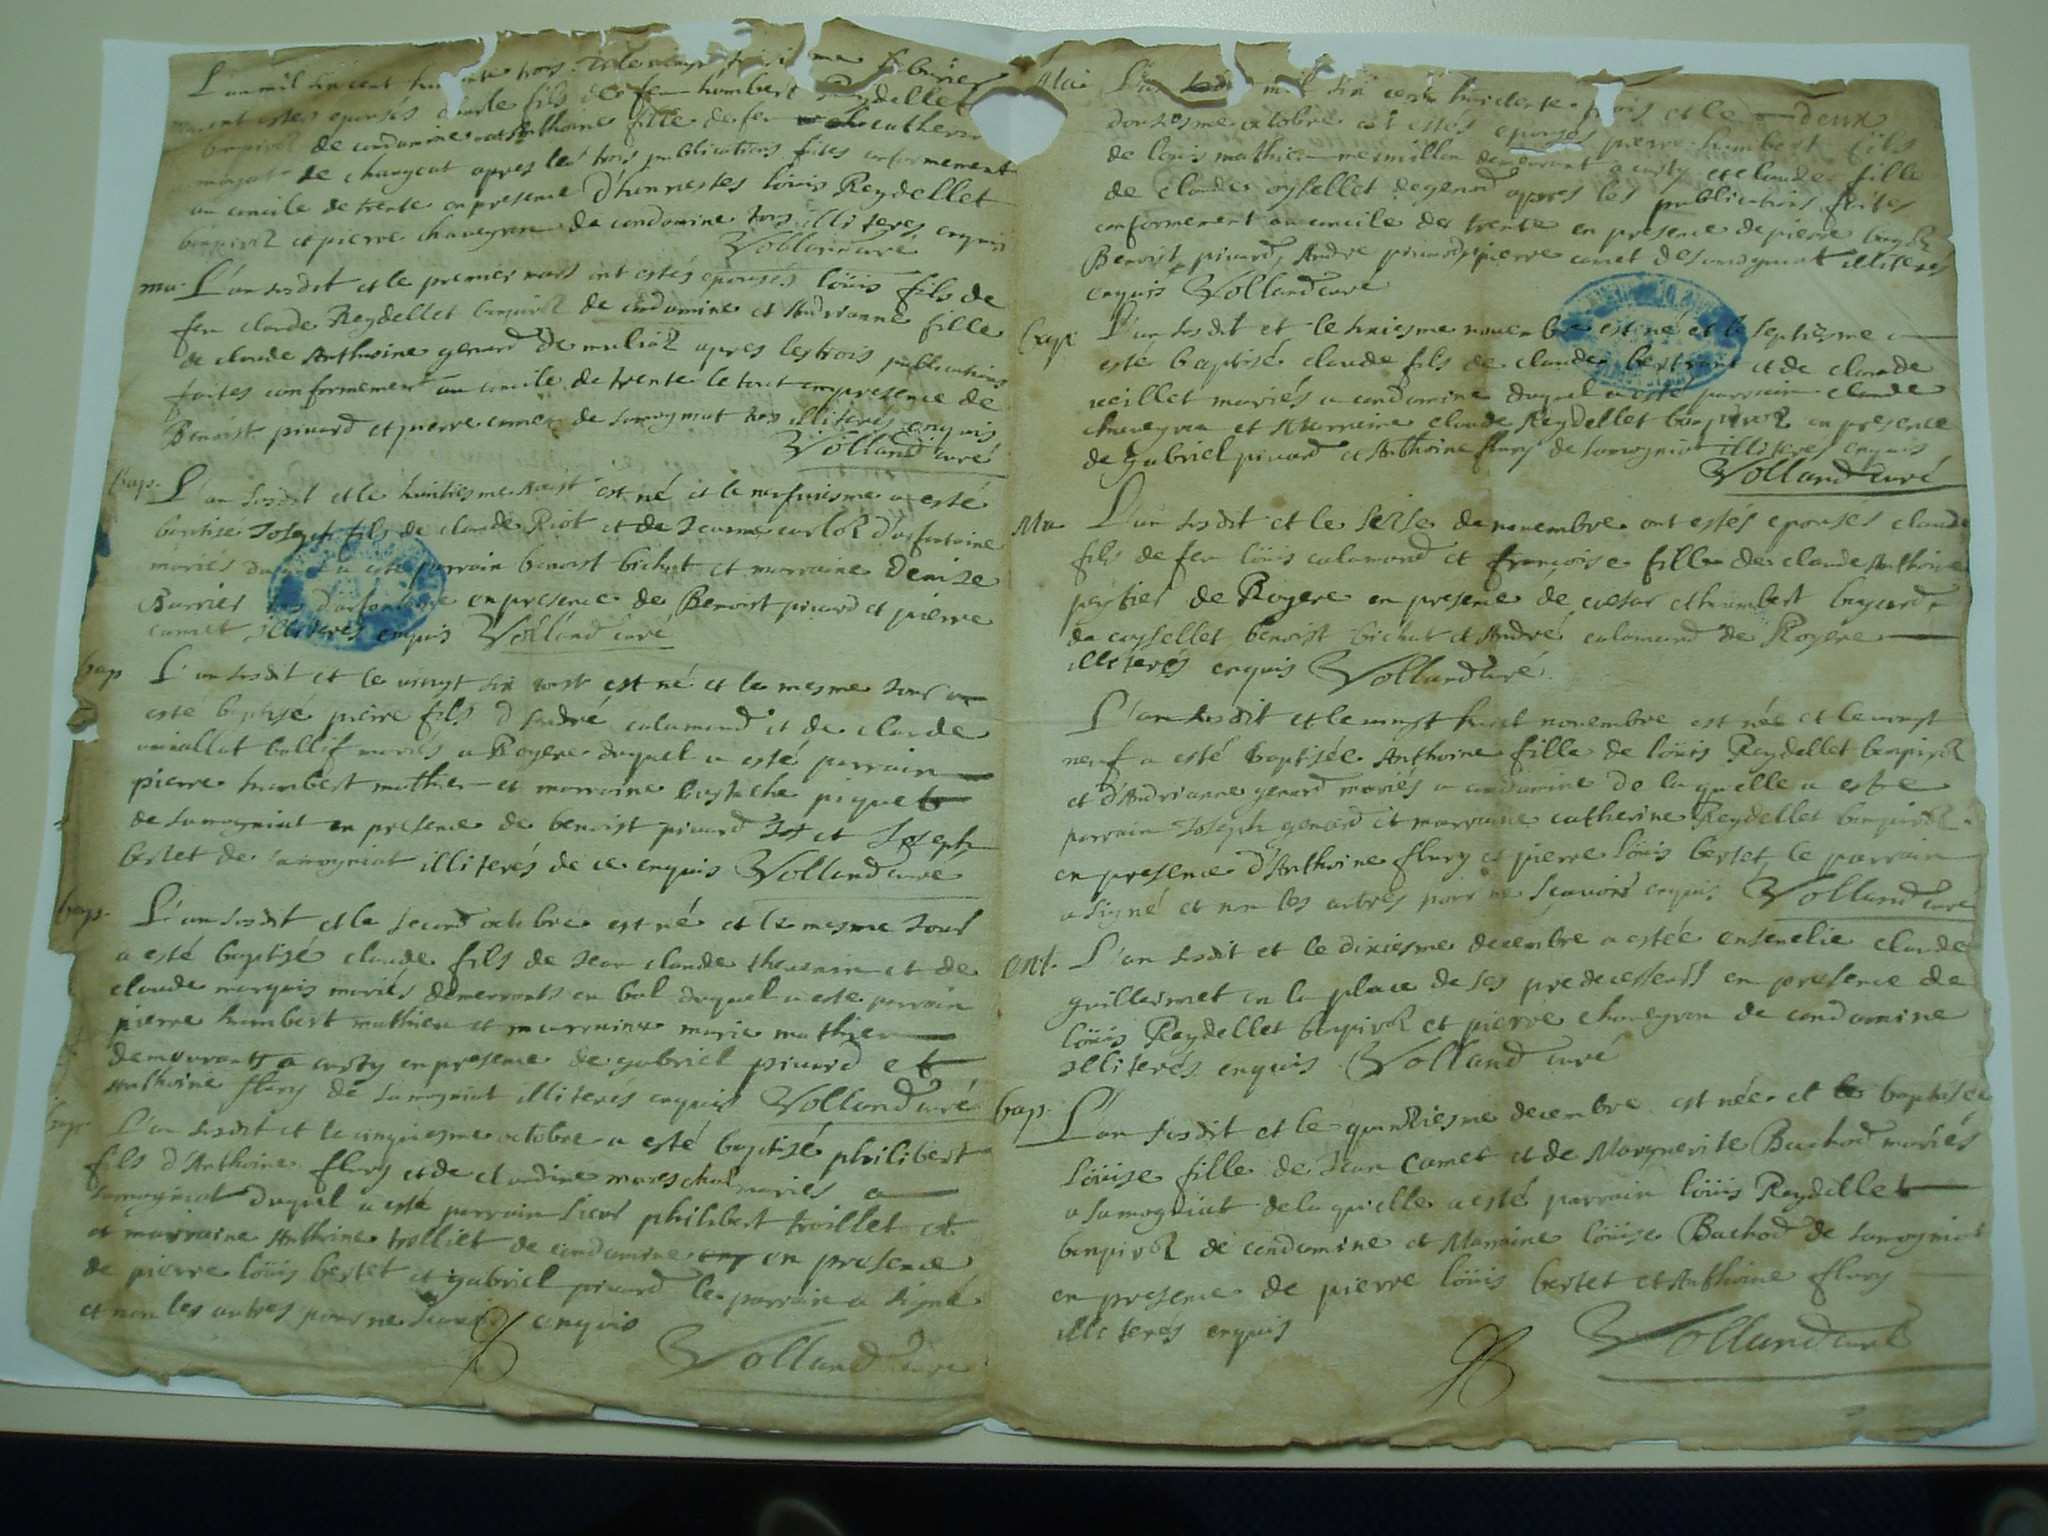 L'an mil six cent huitante trois et le vingt troisiesme feburier
ont estes epousés claude fils de feu humbert Reydellet
bonpiroz de condamine et Anthoine fille de feu catherin
de changeat apres les trois publications faites conformement
au concile de trente en presence d'honnestes loüis Reydellet
bonpiroz et pierre chaneyron de condamine tous illiteres enquis
Volland curé
ma. L'an susdit et le premier mars ont estés epousés loüis fils de
feu claude Reydellet bonpiroz de condamine et Andrianne fille
de claude Anthoine genard de muliaz apres les trois publications
faites conformement au concile de trente le tout en presence de
Benoist picard et pierre camet de samogniat tous illiterés enquis
Volland curé
bap. L'an susdit et le huitiesme Aoust est né et le neufuiesme a esté
baptise Joseph fils de claude Riot et de Jeanne carloz d'arfontaine
mariés duquel a esté parrain benoist bichat et marraine Denize
Barrier d'arfontaine en presence de Benoist picard et pierre
camet illiterés enquis Volland curé
bap L'an susdit et le vingt six aoust est né et le mesme Jour a
esté baptisé pierre fils d'André calamard et de claude
ballif mariés a Royere duquel a esté parrain
pierre humbert mathieu et marraine Eustache piquet
de samogniat en presence de benoist picard et Joseph
bertet de samogniat illiterés de ce enquis Volland curé
bap. L'an susdit et le second octobre est né et le mesme Jour
a esté baptisé claude fils de Jean claude theuenin et de
claude marquis mariés demeurants en bal duquel a esté parrain
pierre humbert mathieu et marraine marie mathieu
demourants a custy en presence de gabriel picard et
Anthoine flury de samogniat illiterés enquis Volland curé
bap. L'an susdit et le cinquiesme octobre a esté baptisé philibert
fils d'Anthoine flury et de claudine mareschal mariés a
samogniat duquel a esté parrain sieur philibert troillet et
et marraine Anthoine trolliet de condamine en presence
de pierre loüis bertet et gabriel picard le parrain a signé
et non les autres pour ne scauoir enquis
Volland curé
Ma L'an mil six cent huictante trois et le deux
Douziesme octobre ont estés epousés pierre humbert fils
de louis mathieu mermillon demeurant a custy et claude fille
de claude oysellet de genod apres les publications faites
conformement au concile de trente en presence de pierre
Benoist picard, André picard, pierre camet de samogniat illiterés
enquis Volland curé
bap L'an susdit et le sixiesme nouembre est né et le septiesme a
esté baptisé claude fils de claude bertrand et de claude
ueillet mariés a condamine duquel a esté parrain claude
chaneyron et Marraine claude Reydellet bonpiroz en presence
de gabriel picard et Anthoine flury de samogniat illiteres enquis
Volland curé
Ma L'an susdit et le seize de nouembre ont estés epousés claude
fils de feu loüis calamard et françoise fille de claude Anthoine
de Royere en presence de cesar et humbert
de oysellet benoist bichat et André calamard de Royere
illiterés enquis Volland curé.
L'an susdit et le vingt huict nouembre est née et le vingt
neuf a esté baptisée Anthoine fille de loüis Reydellet bonpiroz
et d'Andrianne genard mariés a condamine de la quelle a este
parrain Joseph genard et marraine catherine Reydellet bonpiroz
en presence d'Anthoine flury et pierre loüis bertet, le parrain
a signé et non les autres pour ne scauoir enquis Volland curé
ent. L'an susdit et le dixiesme decembre a estée enseuelie claude
guillermet en la place de ses predecesseurs en presence de
loüis Reydellet bonpiroz et pierre chaneyron de condamine
illiterés enquis Volland curé
bap. L'an susdit et le quinziesme decembre est née et baptisée
loüise fille de Jean camet et de Marguerite Buchod mariés
a samogniat de la quielle a esté parrain loüis Reydellet
bonpiroz de condamine et Maraine loüise Buchod de samogniat
en presence de pierre loüis bertet et Anthoine flury
illiterés enquis
Volland curé